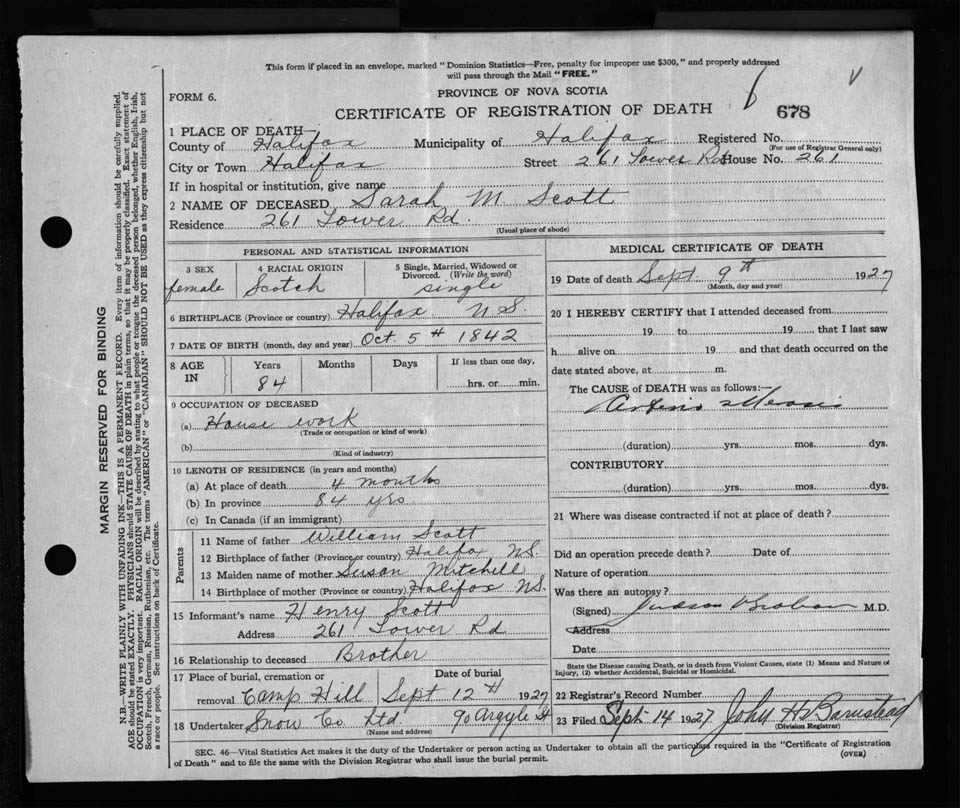 This form if placed in an envelope, marked "Dominion Statistics—Free, penalty for improper use $300," and properly addressed
will pass through the Mail "FREE."
FORM 6.
PROVINCE OF NOVA SCOTIA
CERTIFICATE OF REGISTRATION OF DEATH
678
1 PLACE OF DEATH—
County of Halifax Municipality of Halifax Registered No.
(For use of Registrar General only)
City or Town Halifax Street 261 Tower Rd House No. 261
If in hospital or institution, give name
2 NAME OF DECEASED Sarah M Scott
Residence 261 Tower Rd.
(Usual place of abode)
PERSONAL AND STATISTICAL INFORMATION
3 SEX 4 RACIAL ORIGIN 5 Single, Married, Widowed or
Divorced. (Write the word)
female Scotch single
6 BIRTHPLACE (Province or country) Halifax N.S.
7 DATE OF BIRTH (month, day and year) Oct. 5th 1842
8 AGE IN Years Months Days If less than one day,
84 hrs. or min.
9 OCCUPATION OF DECEASED
(a) House work
(Trade or occupation or kind of work)
(b)
(Kind of industry)
10 LENGTH OF RESIDENCE (in years and months)
(a) At place of death 4 months
(b) In province 84 yrs
(c) In Canada (if an immigrant)
Parents
11 Name of father William Scott
12 Birthplace of father (Province or country) Halifax N.S.
13 Maiden name of mother Susan Mitchell
14 Birthplace of mother (Province or country) Halifax N.S.
15 Informant's name Henry Scott
Address 261 Tower Rd
16 Relationship to deceased Brother
17 Place of burial, cremation or Date of burial
removal Camp Hill Sept 12th 1927
18 Undertaker Snow Co. Ltd. 90 Argyle St
(Name and address)
MEDICAL CERTIFICATE OF DEATH
19 Date of death Sept. 9th 1927
(Month, day and year)
20 I HEREBY CERTIFY that I attended deceased from
19 to 19 that I last saw
h alive on 19 and that death occurred on the
date stated above, at m.
The CAUSE of DEATH was as follows:—
(duration) yrs. mos. dys.
CONTRIBUTORY
(duration) yrs. mos. dys.
21 Where was disease contracted if not at place of death?
Did an operation precede death? Date of
Nature of operation
Was there an autopsy?
(Signed) M.D.
Address
Date
State the Disease causing Death, or in death from Violent Causes, state (1) Means and Nature of
Injury, (2) whether Accidental, Suicidal or Homicidal.
22 Registrar's Record Number
23 Filed Sept. 14 1927 John H Barnstead
(Division Registrar)
SEC. 46—Vital Statistics Act makes it the duty of the Undertaker or person acting as Undertaker to obtain all the particulars required in the "Certificate of Registration
of Death" and to file the same with the Division Registrar who shall issue the burial permit.
(OVER)
MARGIN RESERVED FOR BINDING
N.B.—WRITE PLAINLY WITH UNFADING INK—THIS IS A PERMANENT RECORD. Every item of information should be carefully supplied.
AGE should be stated EXACTLY. PHYSICIANS should STATE CAUSE OF DEATH in plain terms, so that it may be properly classified. Exact statement of
OCCUPATION is very important. RACIAL ORIGIN will be described by stating to what people or tongue the deceased person belonged, whether English, Irish,
Scotch, French, German, Russian, Ruthenian, etc. The terms "AMERICAN" or "CANADIAN" SHOULD NOT BE USED as they express citizenship but not
a race or people. See instructions on back of Certificate.